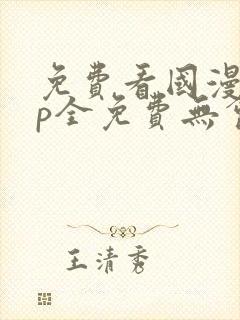 免費看國漫
p全免費無
王清秀